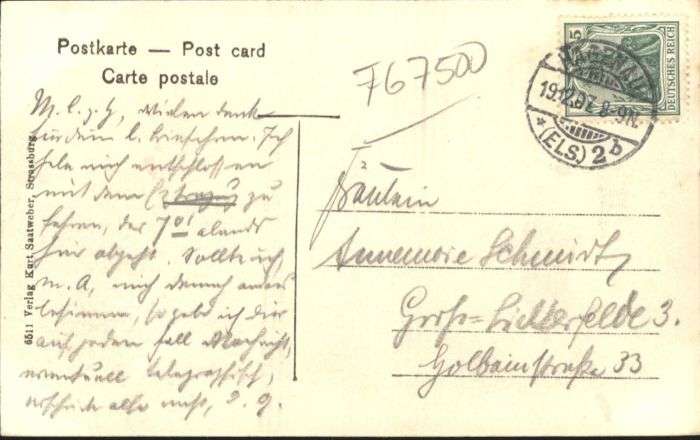 Postkarte — Post card
Carte postale
767500
5
DEUTSCHES REICH
HAGENAU
19.12.07. 8-9N.
* (ELS.) 2b
6511 Verlag Kurt Saatweber, Strassburg
M. l. g. H, Vielen Dank
für dein l. Briefchen. Ich
habe mich entschlossen
mit dem zu
fahren, der 7 01 abends
hier abgeht. Sollte ich,
m. A, mich danach anders
besinnen, so gebe ich dir
auf jeden Fall Nachricht,
eventuell telegraphisch,
Fräulein
Annemarie Schmidt
Groß=Lichterfelde 3.
Holbeinstraße 33